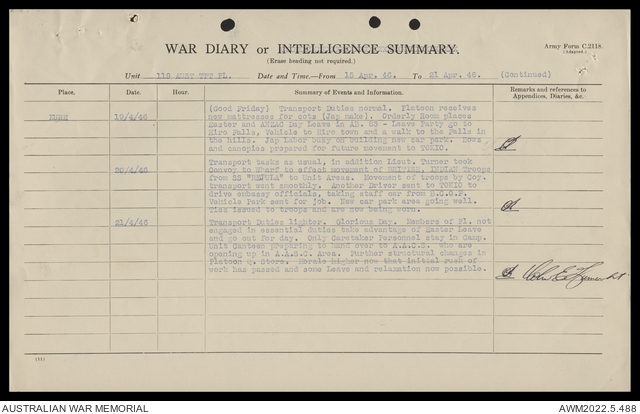 WAR DIARY or INTELLIGENCE SUMMARY.
(Erase heading not required.)
Army Form C.2118.
(Adapted.)
Unit 118 AUST TPT PL. Date and Time.—From 15 Apr. 46. To 21 Apr. 46. (Continued)
Place. Date. Hour. Summary of Events and Information. Remarks and references to Appendices, Diaries, &c.
KURE 19/4/46 (Good Friday) Transport Duties normal. Platoon receives
new mattresses for cots (Jap make). Orderly Room places
Easter and ANZAC Day Leave in 83 - Leave Party go to
Hiro Falls, Vehicle to Hiro town and a walk to the Falls in
the hills. Jap Labor busy on building new car park. Bows
and canopies prepared for future movement to TOKIO.
20/4/46 Transport tasks as usual, in addition Lieut. Turner took
Convoy to Wharf to effect movement of BRITISH, INDIAN Troops
from SS "REGULA" to Unit Areas. Movement of troops by Coy.
transport went smoothly. Another Driver sent to TOKIO to
drive embassy officials, taking staff car from B.C.O.F.
Vehicle Park sent for job. New car park area going well.
Ties issued to troops and are now being worn.
21/4/46 Transport Duties lighter. Glorious Day. Members of Pl. not
engaged in essential duties take advantage of Easter Leave
and go out for day. Only Caretaker Personnel stay in Camp.
Unit Canteen preparing to hand over to A.A.C.S. who are
opening up in A.A.S.C. Area. Further structural changes in
Platoon Q. Store. Morale higher now that initial rush of
work has passed and some Leave and relaxation now possible.
AUSTRALIAN WAR MEMORIAL
AWM2022.5.488